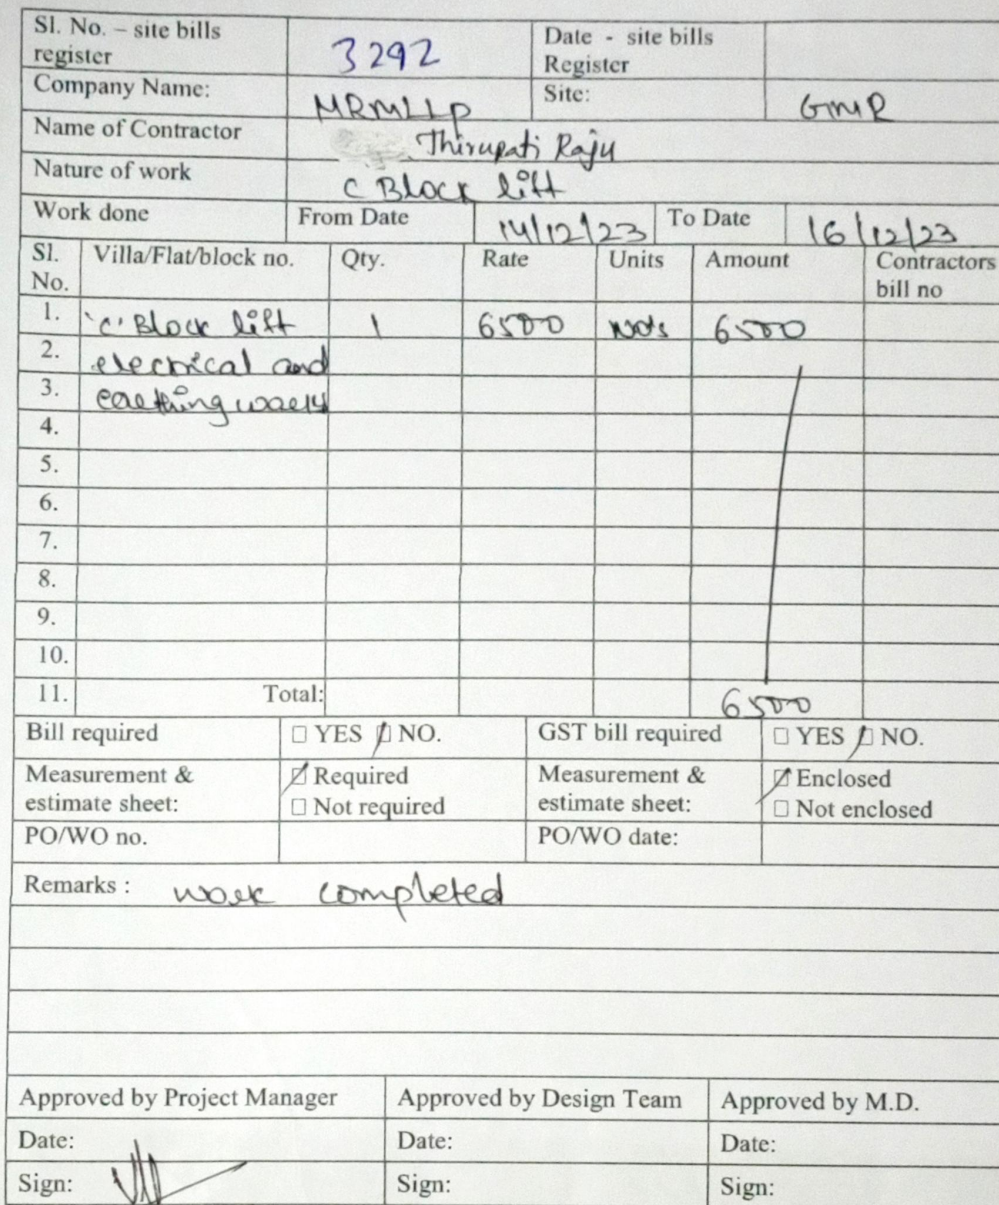 Sl. No. – site bills register 3292 Date - site bills Register
Company Name: MRMLLP Site: GMR
Name of Contractor Thirupati Raju
Nature of work C Block lift
Work done From Date 14/12/23 To Date 16/12/23
Sl. No. Villa/Flat/block no. Qty. Rate Units Amount Contractors bill no
1. 'C' Block lift 1 6500 Nos 6500
2. electrical and
3. earthing works
4.
5.
6.
7.
8.
9.
10.
11. Total: 6500
Bill required □ YES □ NO. GST bill required □ YES □ NO.
Measurement & estimate sheet: □ Required □ Not required Measurement & estimate sheet: □ Enclosed □ Not enclosed
PO/WO no. PO/WO date:
Remarks : work completed
Approved by Project Manager Approved by Design Team Approved by M.D.
Date: Date: Date:
Sign: Sign: Sign: